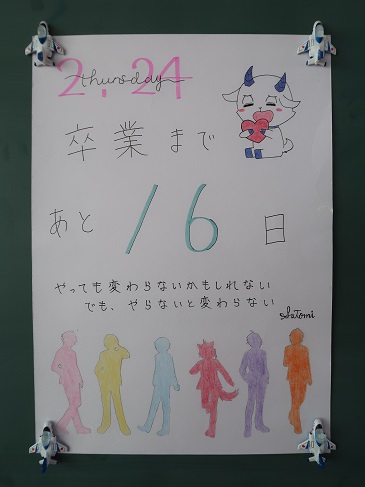 2.24
thursday
卒業まで
あと 16 日
やっても変わらないかもしれない
でも、やらないと変わらない
Satomi